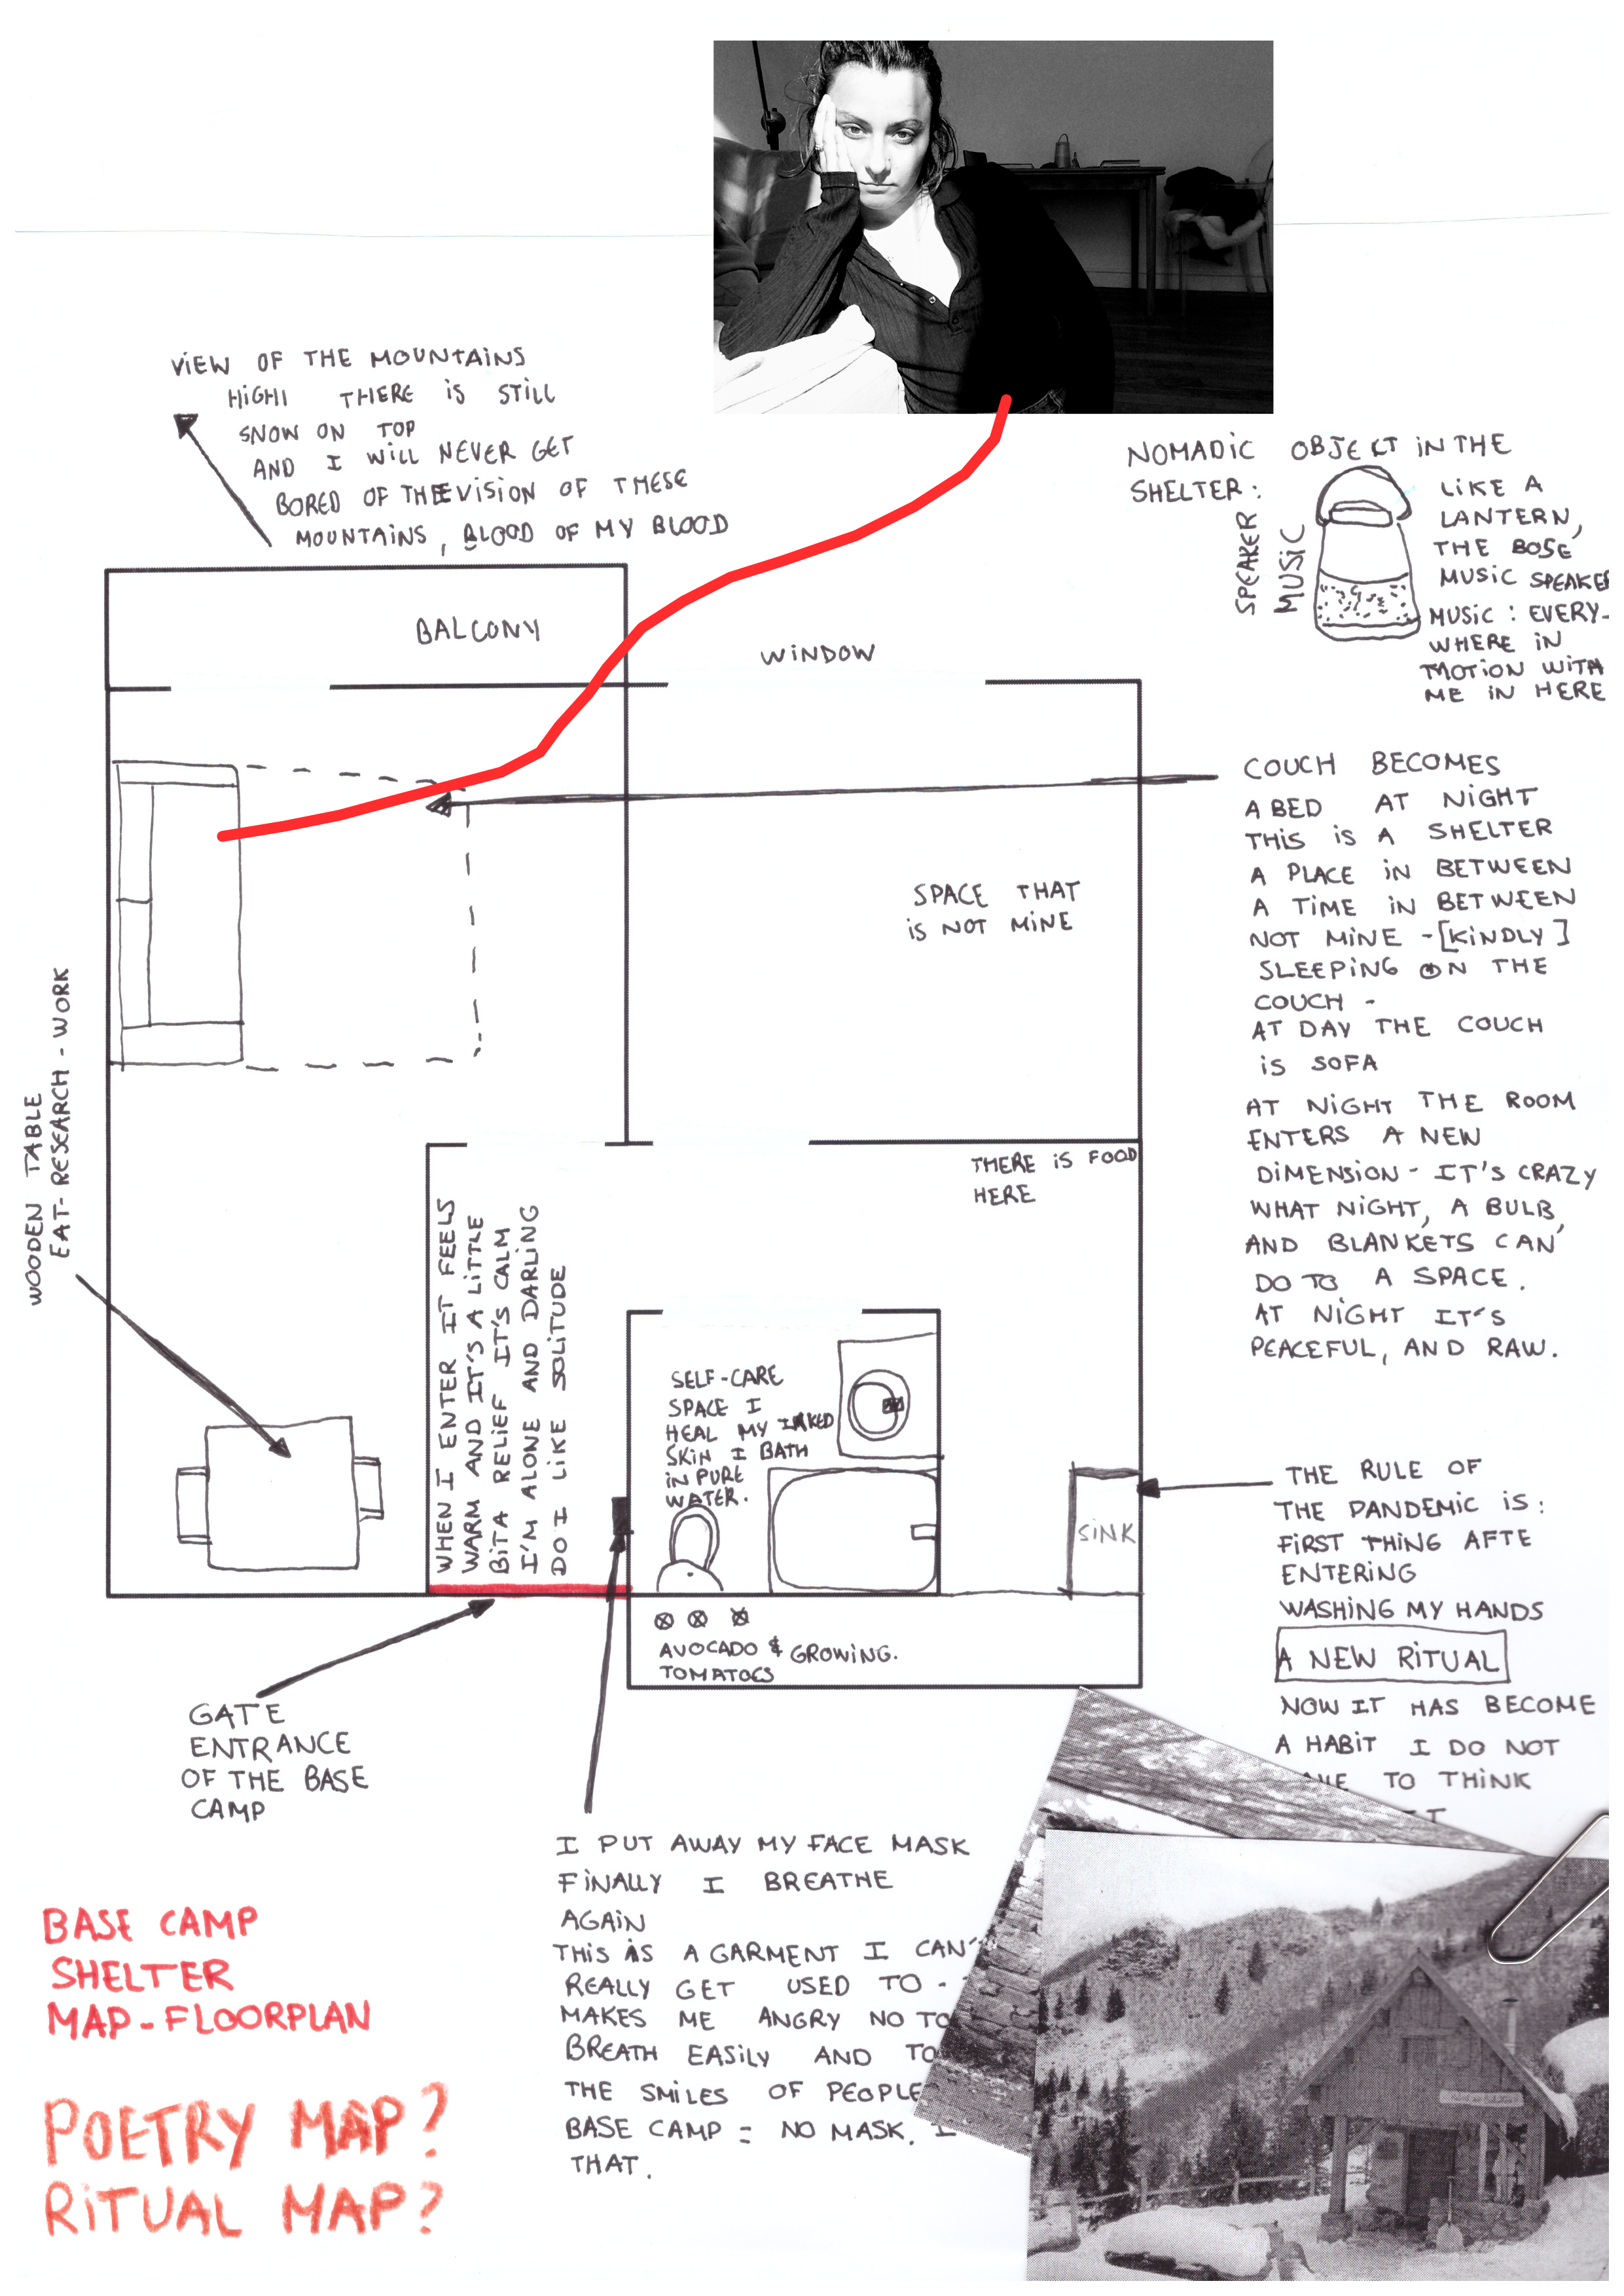 VIEW OF THE MOUNTAINS
HIGH THERE IS STILL
SNOW ON TOP
AND I WILL NEVER GET
BORED OF THE VISION OF THESE
MOUNTAINS, BLOOD OF MY BLOOD
NOMADIC OBJECT IN THE
SHELTER:
SPEAKER
MUSIC
LIKE A
LANTERN,
THE BOSE
MUSIC SPEAKER
MUSIC: EVERY-
WHERE IN
MOTION WITH
ME IN HERE
BALCONY
WINDOW
COUCH BECOMES
A BED AT NIGHT
THIS IS A SHELTER
A PLACE IN BETWEEN
A TIME IN BETWEEN
NOT MINE -[KINDLY]
SLEEPING ON THE
COUCH -
AT DAY THE COUCH
IS SOFA
AT NIGHT THE ROOM
ENTERS A NEW
DIMENSION - IT'S CRAZY
WHAT NIGHT, A BULB,
AND BLANKETS CAN
DO TO A SPACE.
AT NIGHT IT'S
PEACEFUL, AND RAW.
SPACE THAT
IS NOT MINE
WOODEN TABLE
EAT-RESEARCH-WORK
THERE IS FOOD
HERE
WHEN I ENTER IT FEELS
WARM AND IT'S A LITTLE
BIT A RELIEF IT'S CALM
I'M ALONE AND DARLING
DO I LIKE SOLITUDE
SELF-CARE
SPACE I
HEAL MY INKED
SKIN I BATH
IN PURE
WATER.
SINK
THE RULE OF
THE PANDEMIC IS:
FIRST THING AFTE
ENTERING
WASHING MY HANDS
A NEW RITUAL
NOW IT HAS BECOME
A HABIT I DO NOT
TO THINK
AVOCADO & GROWING.
TOMATOES
GATE
ENTRANCE
OF THE BASE
CAMP
I PUT AWAY MY FACE MASK
FINALLY I BREATHE
AGAIN
THIS IS A GARMENT I CAN'
REALLY GET USED TO -
MAKES ME ANGRY NO TO
BREATH EASILY AND TO
THE SMILES OF PEOPLE
BASE CAMP = NO MASK. I
THAT.
BASE CAMP
SHELTER
MAP-FLOORPLAN
POETRY MAP?
RITUAL MAP?